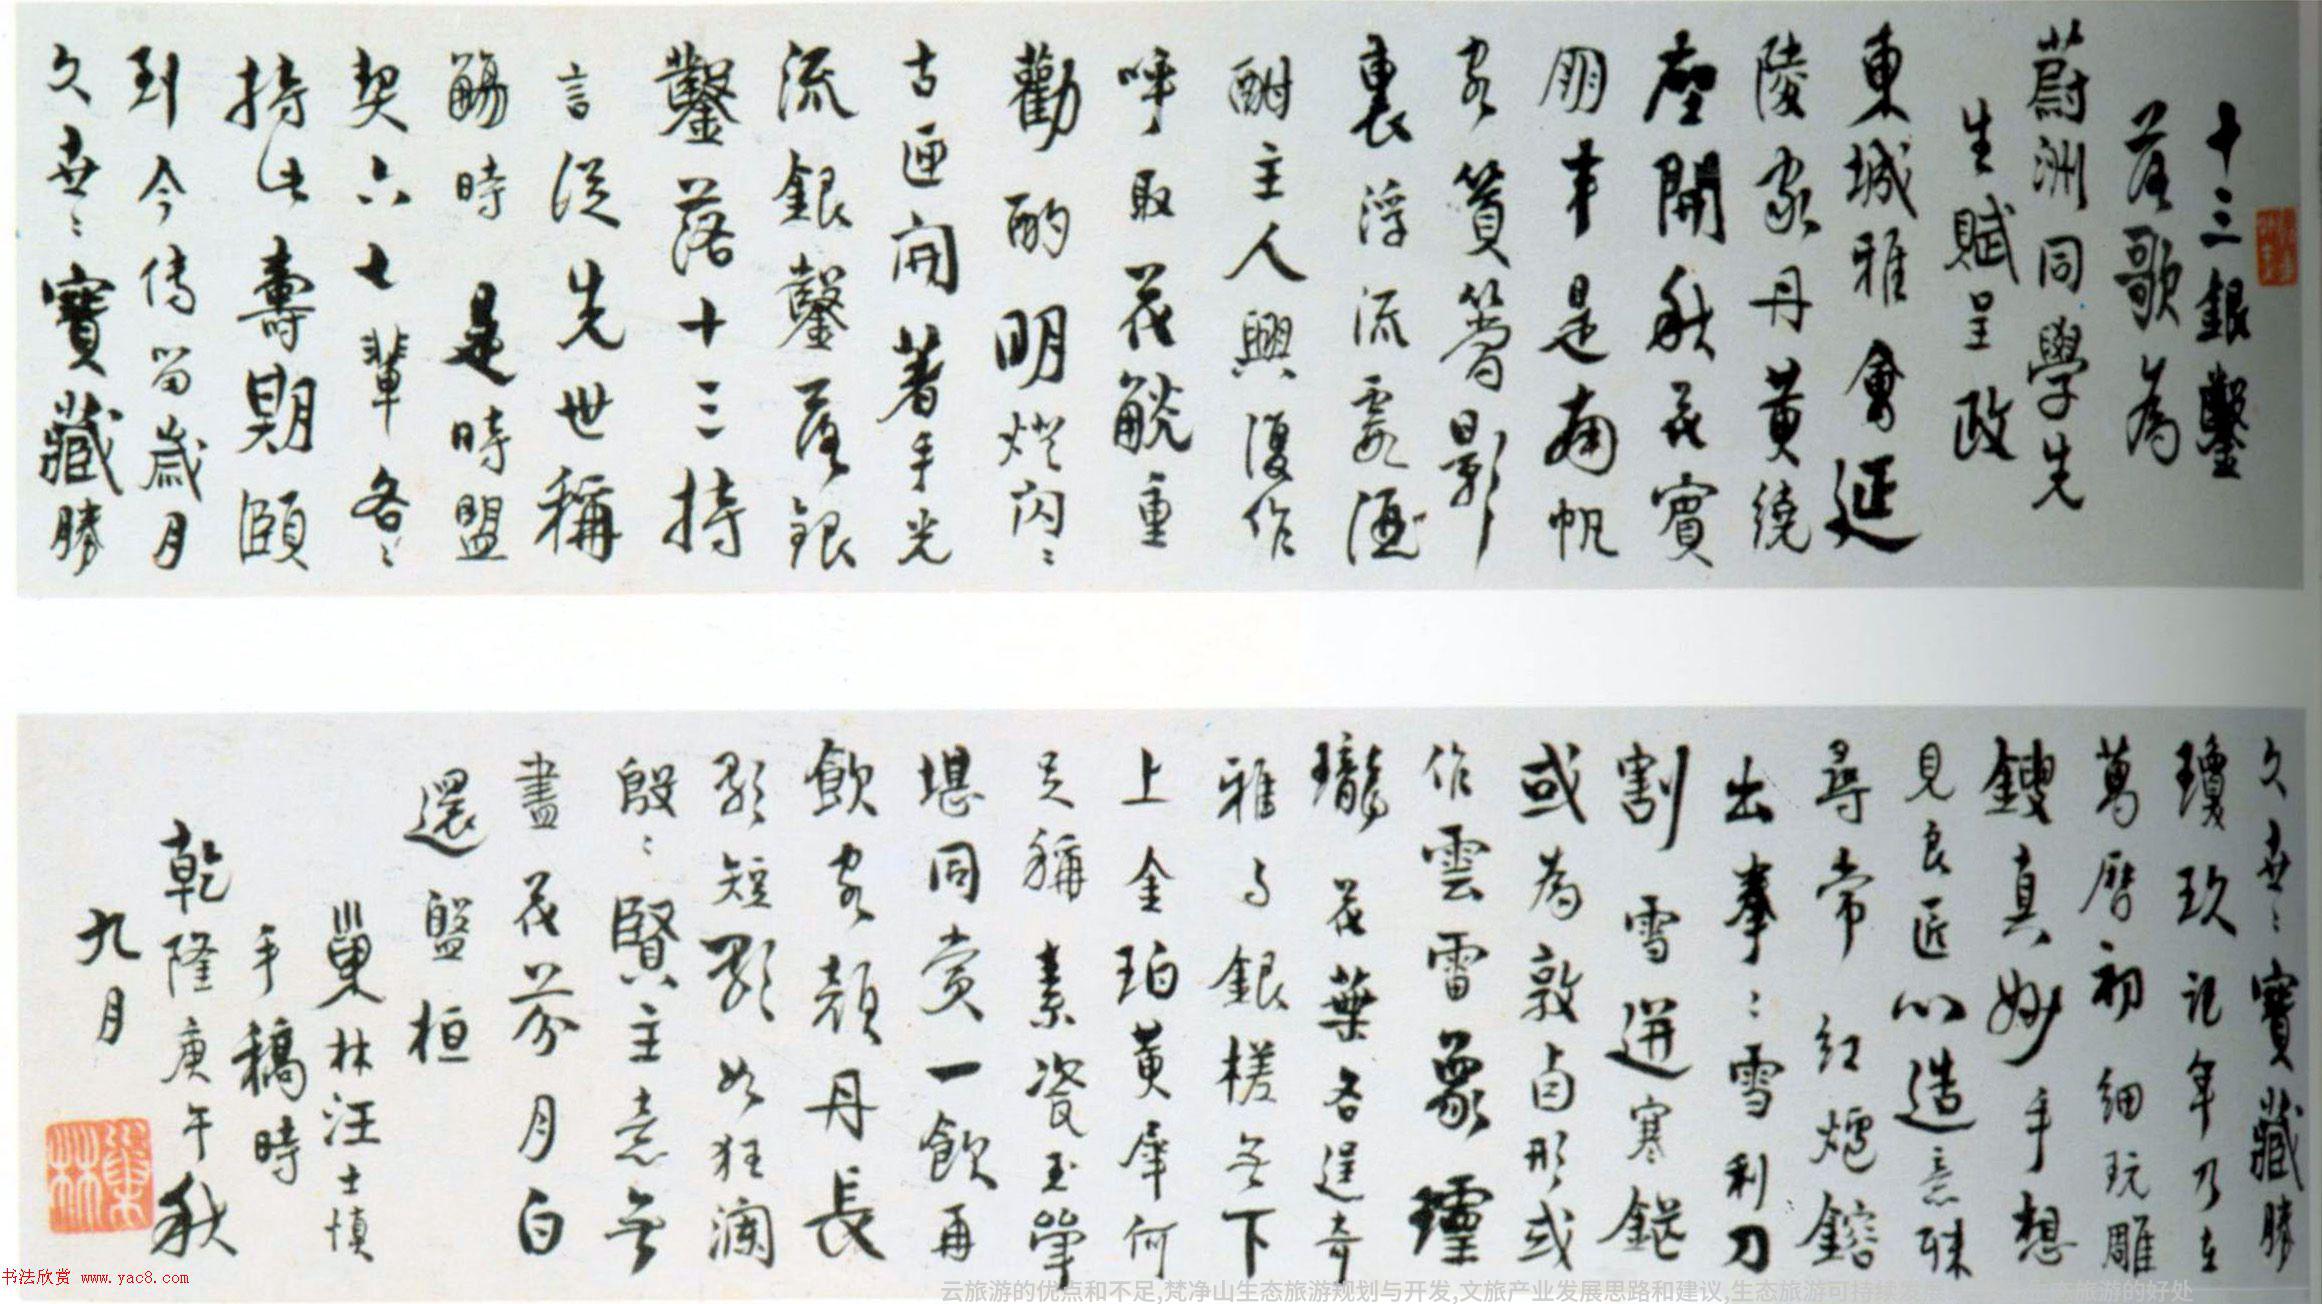 十三銀鑿
落歌為
蔚洲同學先
生賦呈政
東城雅會延
陵家丹黄繞
座開秋花賓
朋半是南帆
客篔簹影
裏浮流霞酒
酣主人興復作
呼取花觥重
勸酌明燈閃〻
古匣開著手光
流銀鑿落銀
鑿落十三持
言從先世稱
觴時是時盟
契六七輩各〻
持此壽期頤
到今傳留歲月
久世〻寶藏勝
久世〻寶藏勝
瓊玖記年乃在
萬曆初細玩雕
鎪真妙手想
見良匠心造意殊
尋常紅爐鎔
出拳〻雪利刀
割雪迸寒鋩
或為敦卣形或
作雲雷象瓏
花葉各逞奇
雅与銀槎無下
上金珀黄犀何
足稱素瓷玉斝
堪同賞一飲再
飲客顏丹長
歌短歌如狂瀾
殷〻賢主意無
盡花芬月白
還盤桓
巢林汪士慎
手稿時
乾隆庚午秋
九月
巢林
书法欣赏 www.yac8.com
云旅游的优点和不足,梵净山生态旅游规划与开发,文旅产业发展思路和建议,生态旅游可持续
旅游的好处